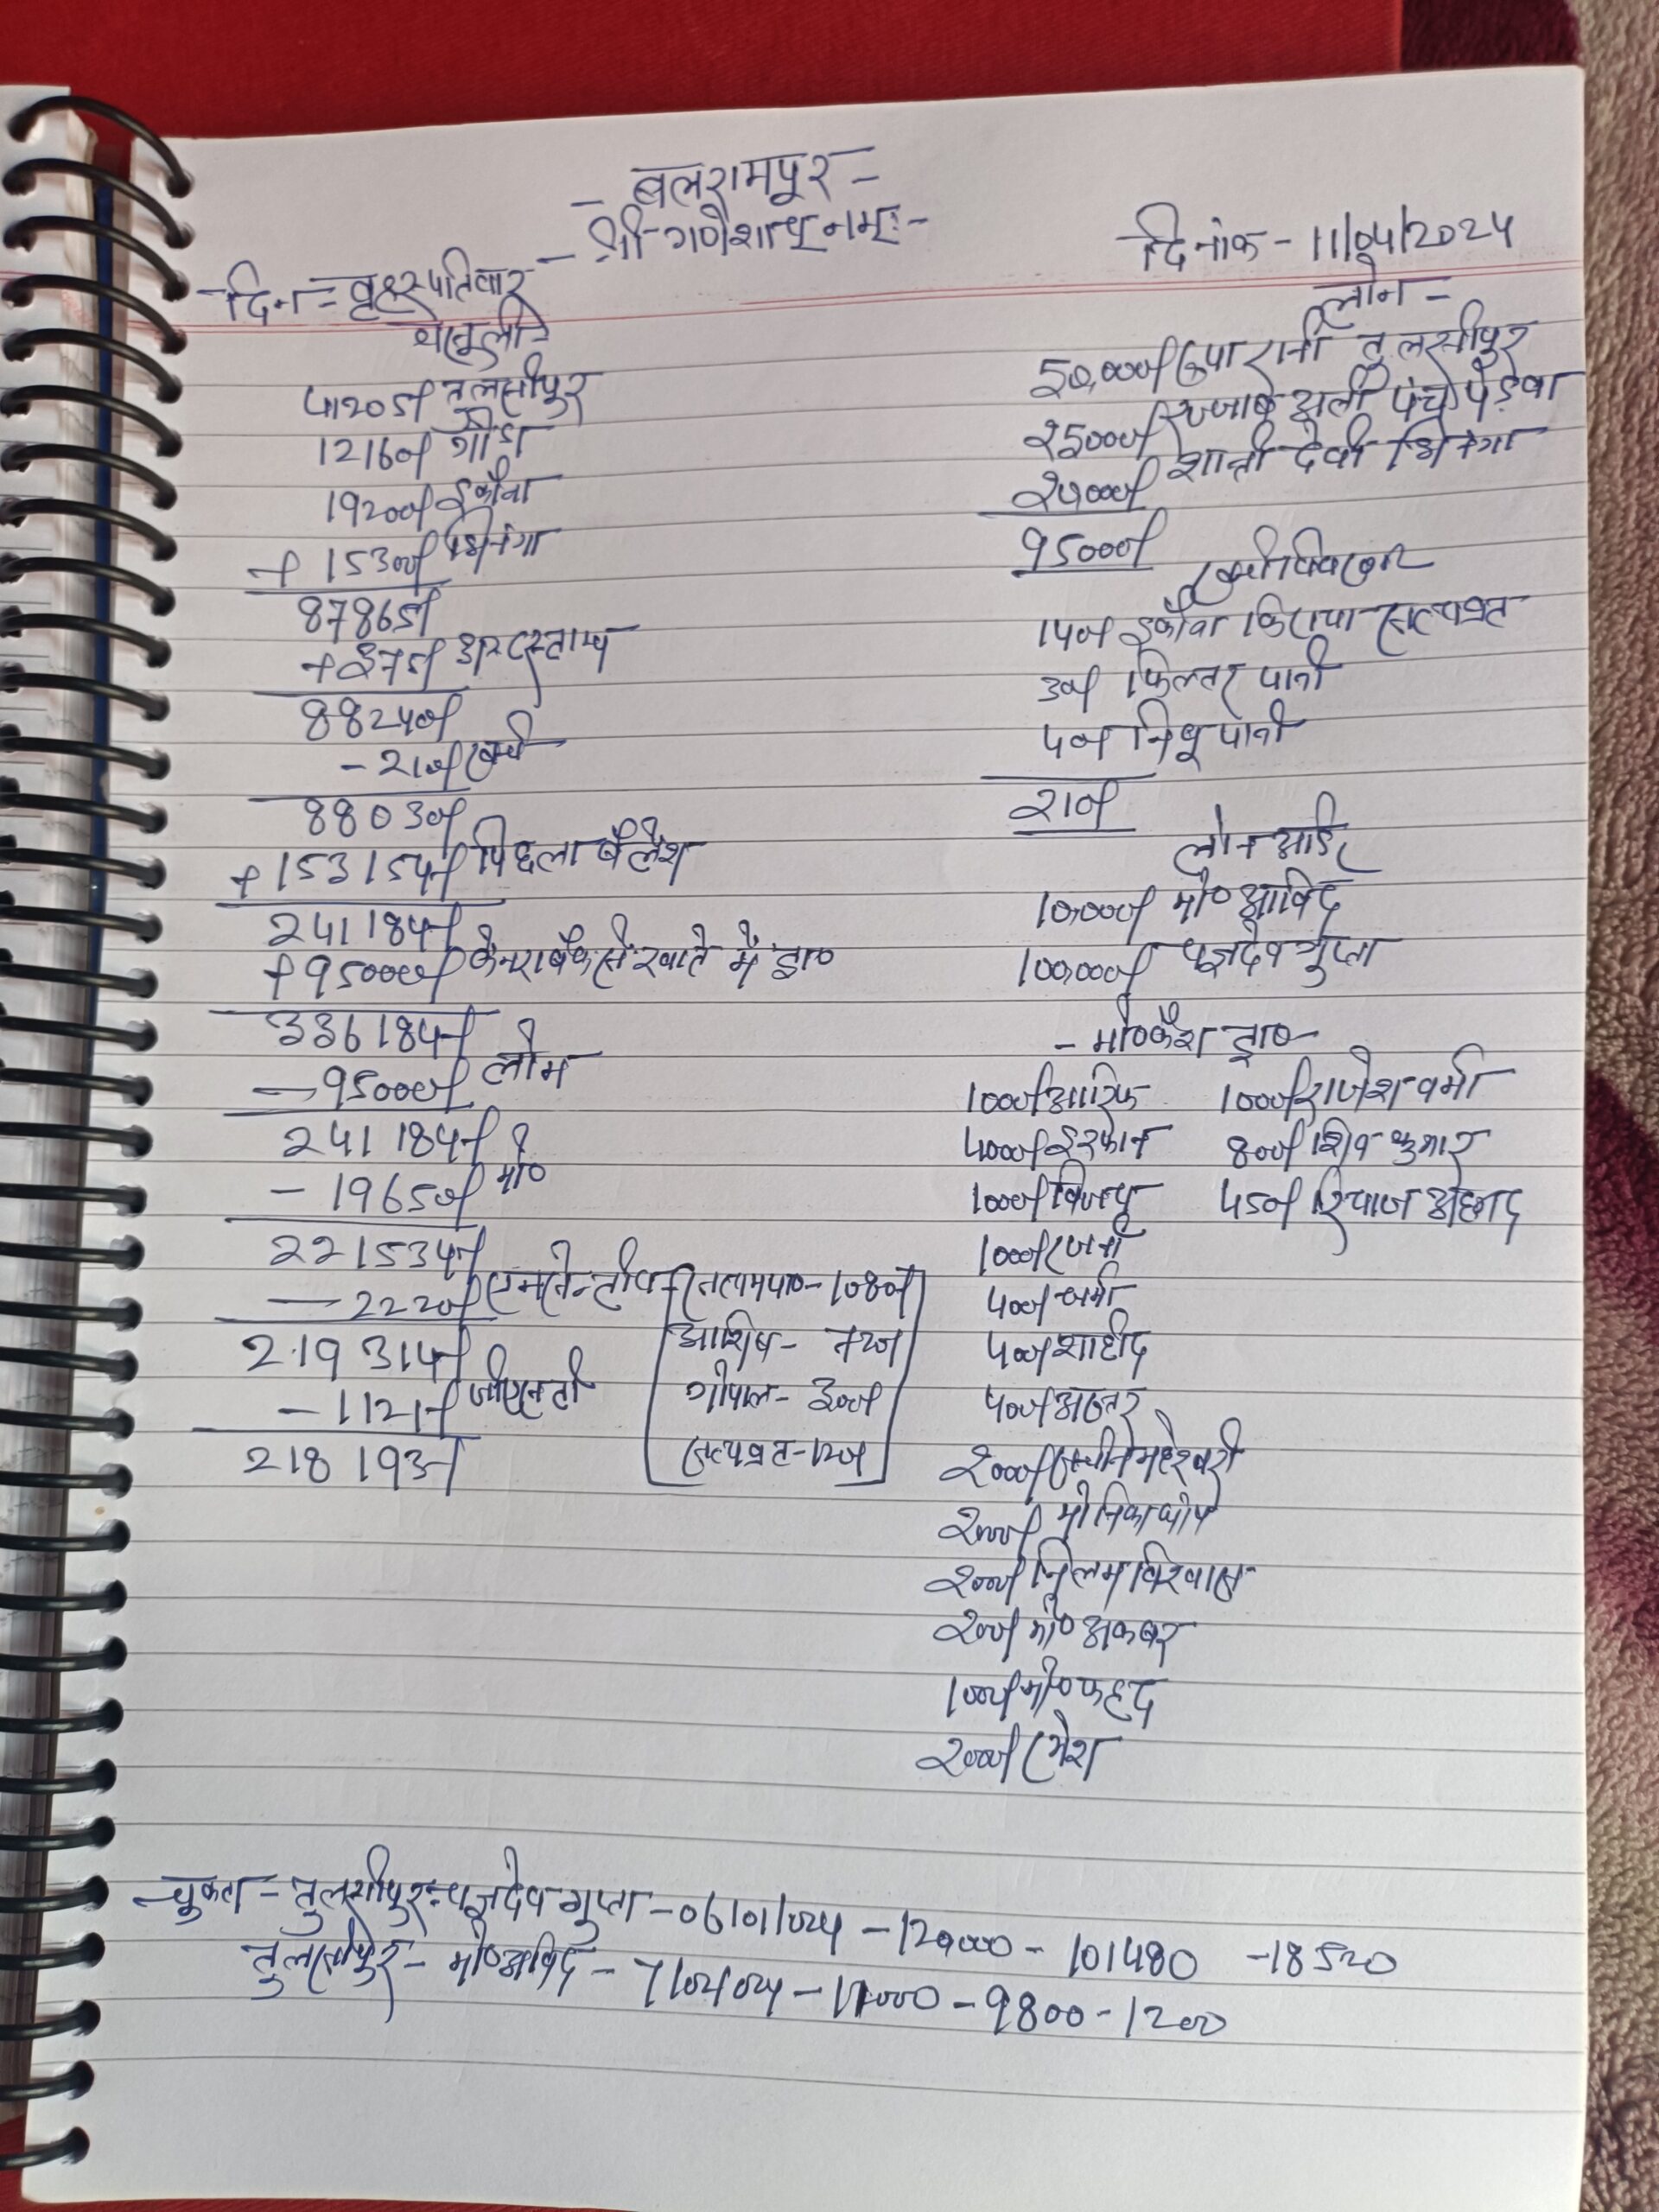 - बलरामपूर -
- श्री गणेशाय नमः -
दिनांक - 11/04/2024
दिन = वृहस्पतिवार
वसूली
41205/ तुलसीपुर
12160/ गोंडा
19200/ इकौना
+ 15300/ भिनगा
87865/
+ 375/
88240/
- 210/ खर्च
88030/
+ 153154/ पिछला बैलेंश
241184/
+ 95000/ केनरा बैंक से खाते में ड्रा०
336184/
- 95000/ लोन
241184/
- 19650/ मो०
221534/
- 2220/
219314/
- 1121/
218193/
1080/
आशिष - 720/
गोपाल - 300/
सत्यव्रत - 120/
लोन -
50,000/ रुपा रानी तुलसीपुर
25000/ रज्जाब अली पंचपेड़वा
20000/ शान्ती देवी भिनगा
95000/
खर्चा विवरण
140/ इकौना किराया सत्यव्रत
30/ फिल्टर पानी
40/ पानी
210/
लोन
10,000/ मो० आबिद
100,000/ यज्ञदेव गुप्ता
- मो० कैश ड्रा० -
1000/ आरिफ 1000/ राजेश वर्मा
4000/ इरफान 800/ शिव कुमार
1000/ विजय 450/ रियाज अहमद
1000/ रजनी
400/ वर्मा
400/ शाहीद
400/ अख्तर
2000/ महेश्वरी
2000/ मोनिका घोष
2000/ निलम विश्वास
200/ मो० अकबर
1000/ मो० फहद
2000/ रमेश
चुकता - तुलसीपुर - यज्ञदेव गुप्ता - 06/01/024 - 120,000 - 101480 - 18520
तुलसीपुर - मो० आबिद - 7/02/024 - 11000 - 9800 - 1200